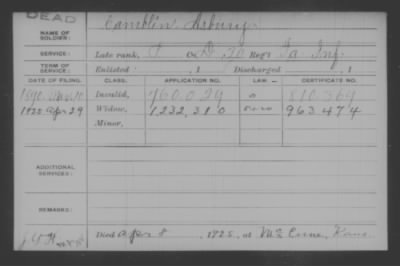 DEAD
NAME OF SOLDIER: Camblin Asbury
SERVICE: Late rank, Co. D, 20 Reg't Ia Inf
TERM OF SERVICE: Enlisted , 1 Discharged , 1
DATE OF FILING. CLASS. APPLICATION NO. LAW. CERTIFICATE NO.
1890 10 Invalid, 760.029 810.369
1925 Apr 29 Widow, 1.232.310 963474
Minor,
ADDITIONAL SERVICES:
REMARKS:
Died Apr 8, 1925, at McCune, Kans